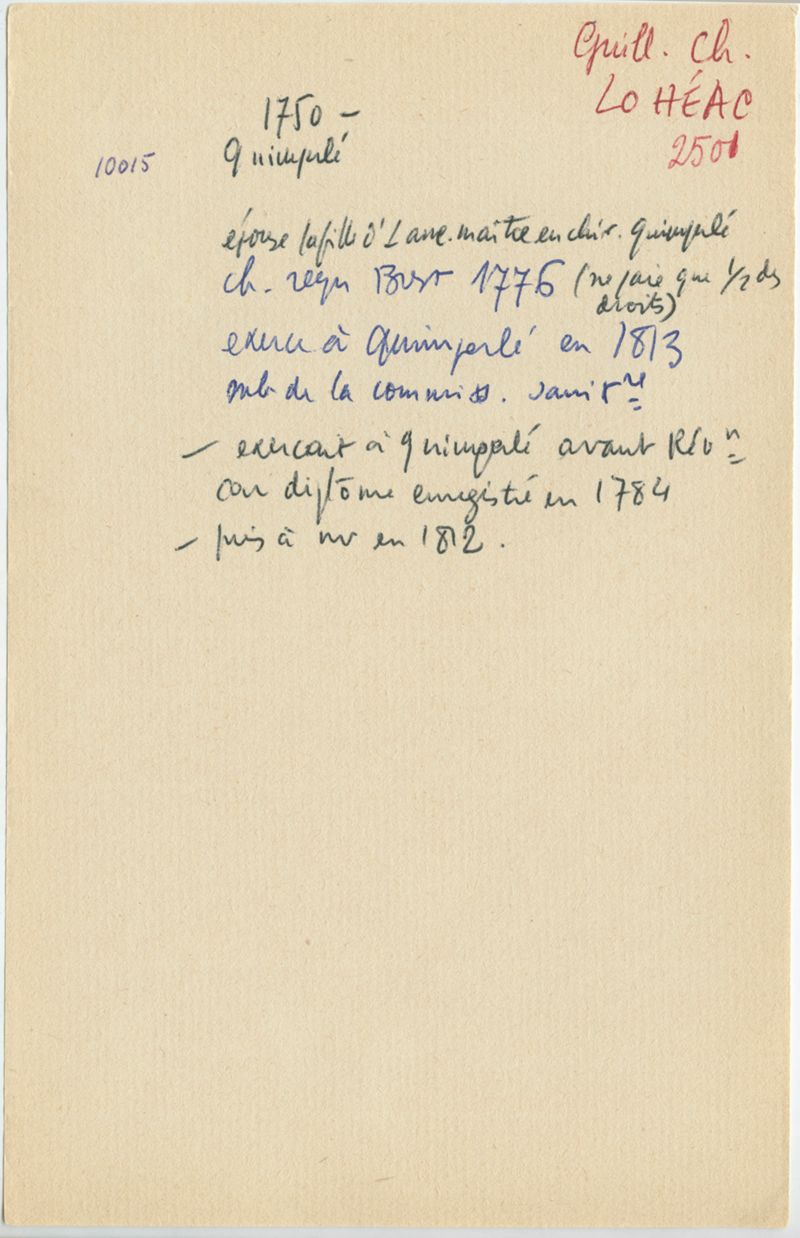 Guill. Ch.
LOHÉAC
2501
1750 -
Quimperlé
10015
épouse la fille d' maître en chir. Quimperlé
ch. reçu Brest 1776 (ne paie que 1/2 des
droits)
exerce à Quimperlé en 1813
mb de la commiss. sanitre
- exerçait à Quimperlé avant Révn
car diplôme enregistré en 1784
- puis à en 1812.